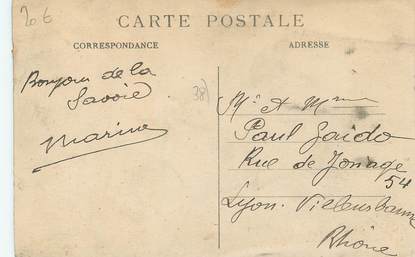 20 €
CARTE POSTALE
CORRESPONDANCE
ADRESSE
Bonjour de la
Savoie
Marino
38)
Mr & Mme
Paul Gaido
Rue de Jonage
54
Lyon. Villeurbanne
Rhône